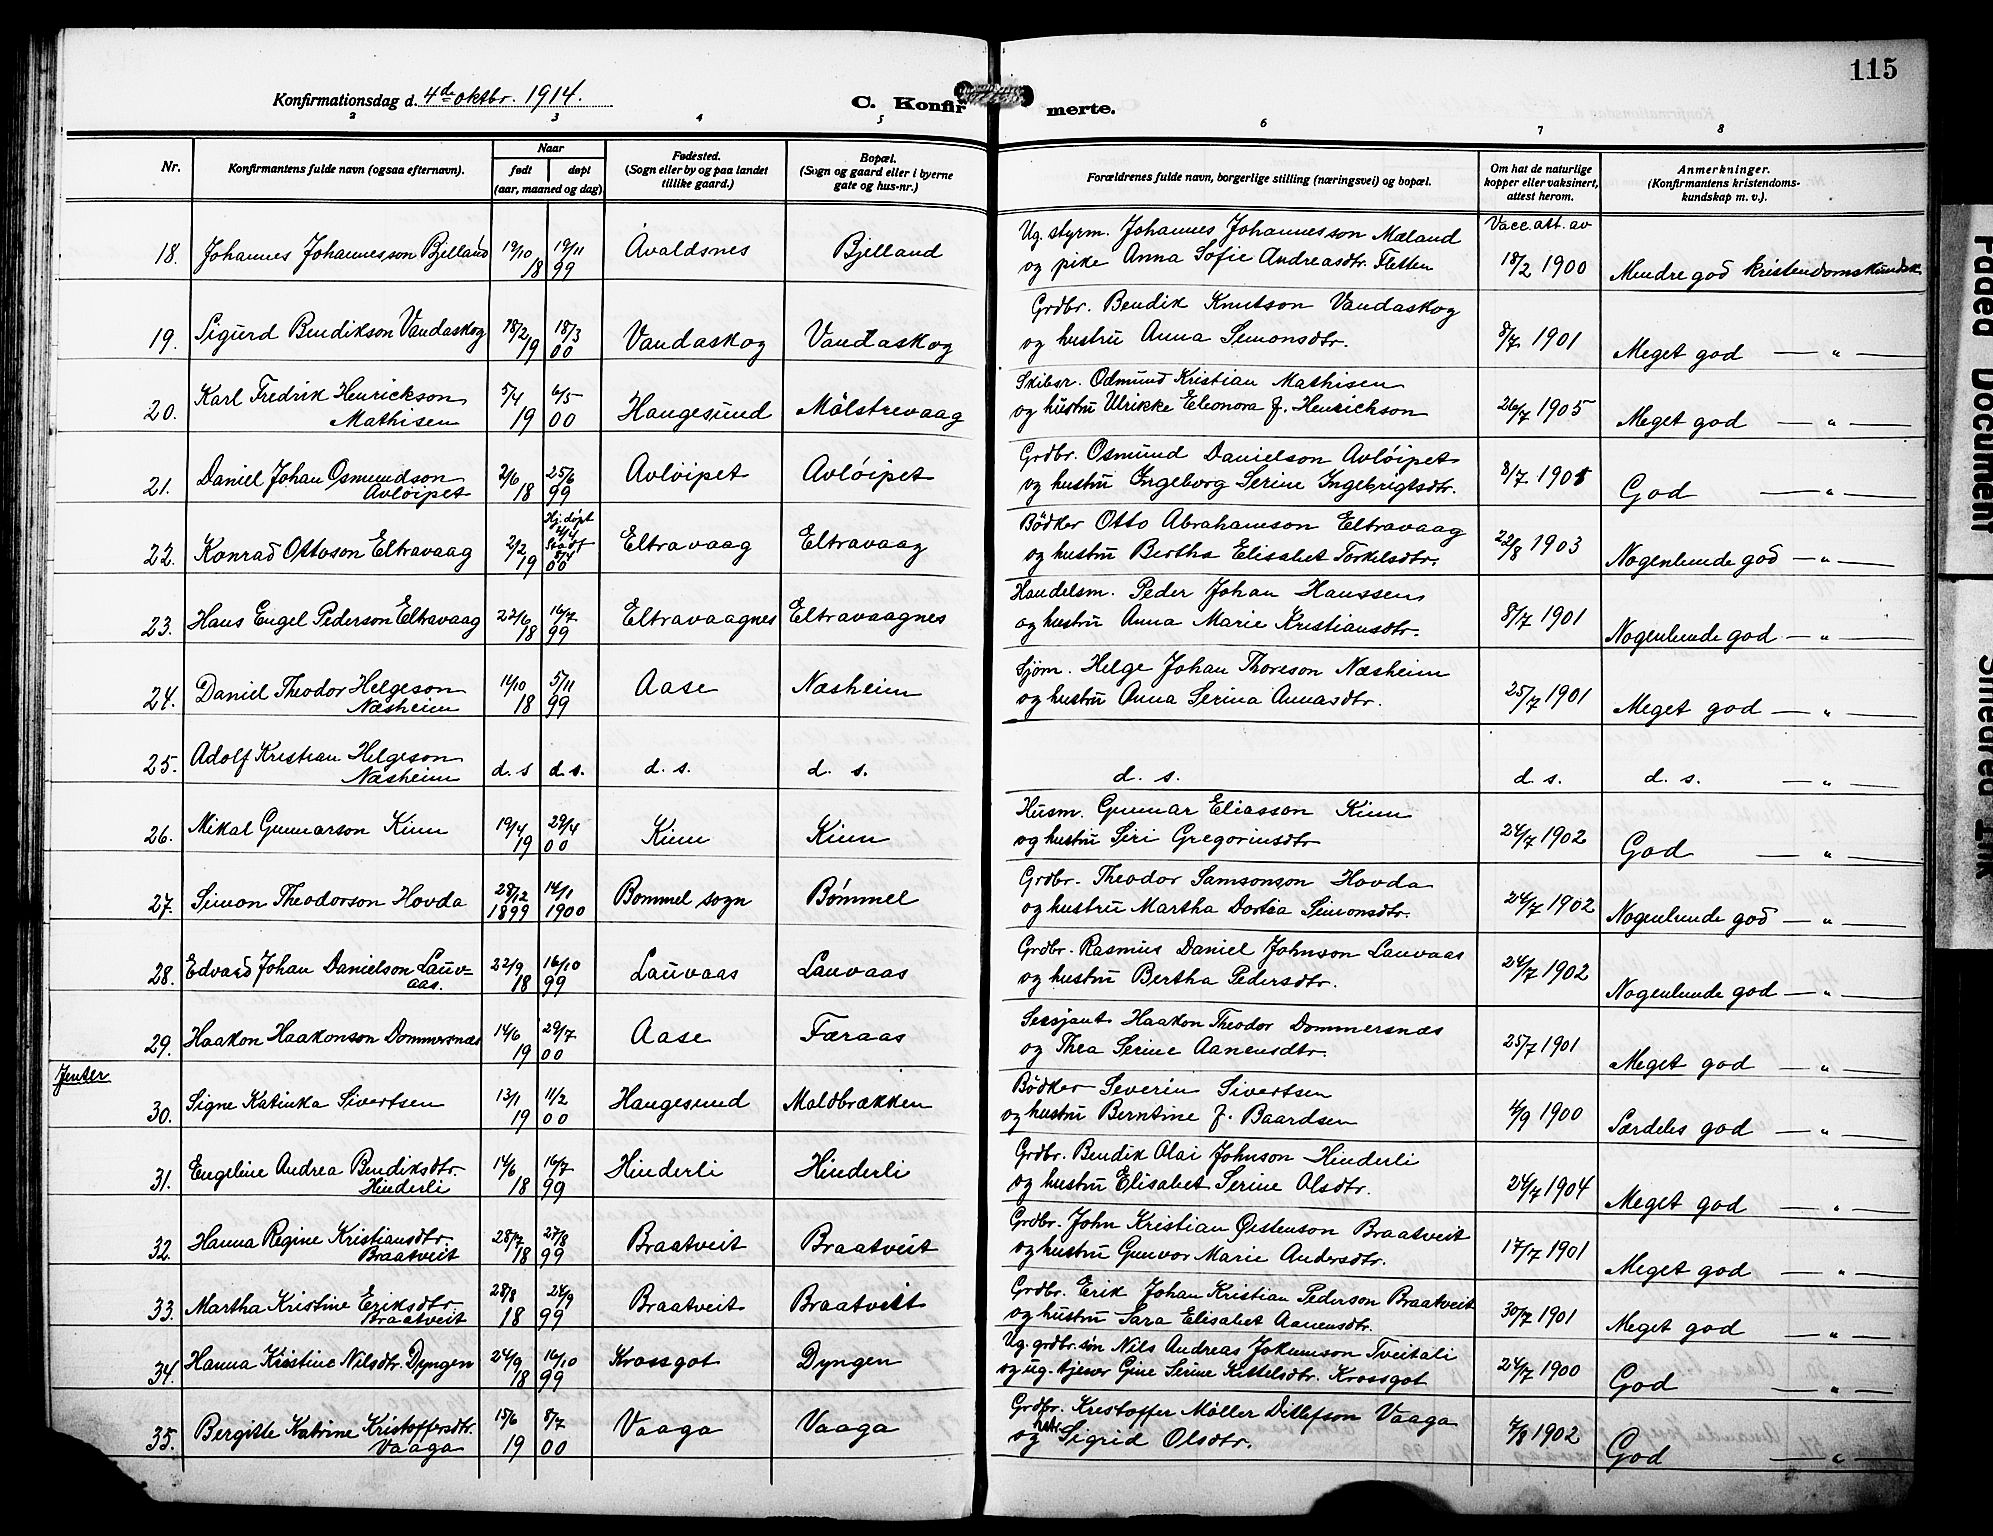 115
Konfirmationsdag d. 4de oktbr. 1914.
C. Konfirmerte.
2 3 4 5 6 7 8
Nr.
Konfirmantens fulde navn (ogsaa efternavn).
Naar
født døpt
(aar, maaned og dag)
Fødested.
(Sogn eller by og paa landet
tillike gaard.)
Bopæl.
(Sogn og gaard eller i byerne
gate og hus-nr.)
Forældrenes fulde navn, borgerlige stilling (næringsvei) og bopæl.
Om hat de naturlige
kopper eller vaksinert,
attest herom.
Anmerkninger.
(Konfirmantens kristendoms-
kundskap m. v.).
Vacc. att. av
18. Johannes Johannesson Bjelland 19/10 18 19/11 99 Avaldsnes Bjelland
Ug. styrm. Johannes Johannesson Mæland
og pike Anna Sofie Andreasdtr. Fletten 18/2 1900 Mindre god kristendomskundsk
19. Sigurd Bendikson Vandaskog 18/2 19 18/3 00 Vandaskog Vandaskog
Grdbr. Bendik Knutson Vandaskog
og hustru Anna Simonsdtr. 8/7 1901 Meget god — " —
20. Karl Fredrik Henrickson
Mathisen 5/4 19 6/5 00 Haugesund Målstrevaag
Skibsr. Odmund Kristian Mathisen
og hustru Ulrikke Eleonora f. Henrichson 26/7 1905 Meget god — " —
21. Daniel Johan Osmundson
Avløipet 2/6 18 25/6 99 Avløipet Avløipet
Grdbr. Osmund Danielson Avløipet
og hustru Ingeborg Serine Ingebrigtsdtr. 8/7 1901 God — " —
22. Konrad Ottoson Eltravaag 2/2 19 Hj. døpt
00 Eltravaag Eltravaag
Bødker Otto Abrahamson Eltravaag
og hustru Bertha Elisabet Torkelsdtr. 22/8 1903 Nogenlunde god — " —
23. Hans Engel Pederson Eltravaag 22/6 18 16/7 99 Eltravaagnes Eltravaagnes
Handelsm. Peder Johan Hanssen
og hustru Anna Marie Kristiansdtr. 8/7 1901 Nogenlunde god — " —
24. Daniel Theodor Helgeson
Næsheim 14/10 18 5/11 99 Aase Næsheim
Sjøm. Helge Johan Thoreson Næsheim
og hustru Anna Serina Annasdtr. 25/7 1901 Meget god — " —
25. Adolf Kristian Helgeson
Næsheim d. s d. s. d. s. d. s. d. s. d. s. d. s. — " —
26. Mikal Gunnarson Kinn 19/4 19 29/4 00 Kinn Kinn
Husm. Gunnar Eliasson Kinn
og hustru Siri Gregoriusdtr 24/7 1902 God — " —
27. Simon Theodorson Hovda 28/12 1899 14/1 1900 Bømmel sogn Bømmel
Grdbr. Theodor Samsonson Hovda
og hustru Martha Dortea Simonsdtr. 24/7 1902 Nogenlunde god — " —
28. Edvard Johan Danielson Lauv=
aas. 22/9 18 16/10 99 Lauvaas Lauvaas
Grdbr. Rasmus Daniel Johnson Lauvaas
og hustru Bertha Pedersdtr. 24/7 1902 Nogenlunde god — " —
29. Haakon Haakonson Dommersnæs 14/6 19 29/7 00 Aase Færaas
Sersjant Haakon Theodor Dommersnæs
og Thea Serine Aanensdtr. 25/7 1901 Meget god — " —
Jenter
30. Signe Katinka Sivertsen 13/1 19 11/2 00 Haugesund Moldbrækken
Bødker Severin Sivertsen
og hustru Berntine f. Baardsen 4/9 1900 Særdeles god — " —
31. Engeline Andrea Bendiksdtr.
Hinderli 14/6 18 16/7 99 Hinderli Hinderli
Grdbr. Bendik Olai Johnson Hinderli
og hustru Elisabet Serine Olsdtr. 24/7 1904 Meget god — " —
32. Hanna Regine Kristiansdtr.
Braatveit 28/7 18 27/8 99 Braatveit Braatveit
Grdbr. John Kristian Østenson Braatveit
og hustru Gunvor Marie Andersdtr. 17/7 1901 Meget god — " —
33. Martha Kristine Eriksdtr.
Braatveit 28/8 18 24/9 99 Braatveit Braatveit
Grdbr. Erik Johan Kristian Pederson Braatveit
og hustru Sara Elisabet Aanensdtr. 30/7 1901 Meget god — " —
34. Hanna Kristine Nilsdtr. Dyngen 24/9 18 16/10 99 Krossgot Dyngen
Ug. grdbr. søn Nils Andreas Jokumson Tveitali
og ug. tjener Gine Serine Kittelsdtr. Krossgot 24/7 1900 God — " —
35. Bergitte Katrine Kristoffersdtr.
Vaaga 15/6 19 8/7 00 Vaaga Vaaga
Grdbr. Kristoffer Møller Ditlefson Vaaga
og hstr. Sigrid Olsdtr. 7/8 1902 God — " —
Faded Document
Smeared Ink